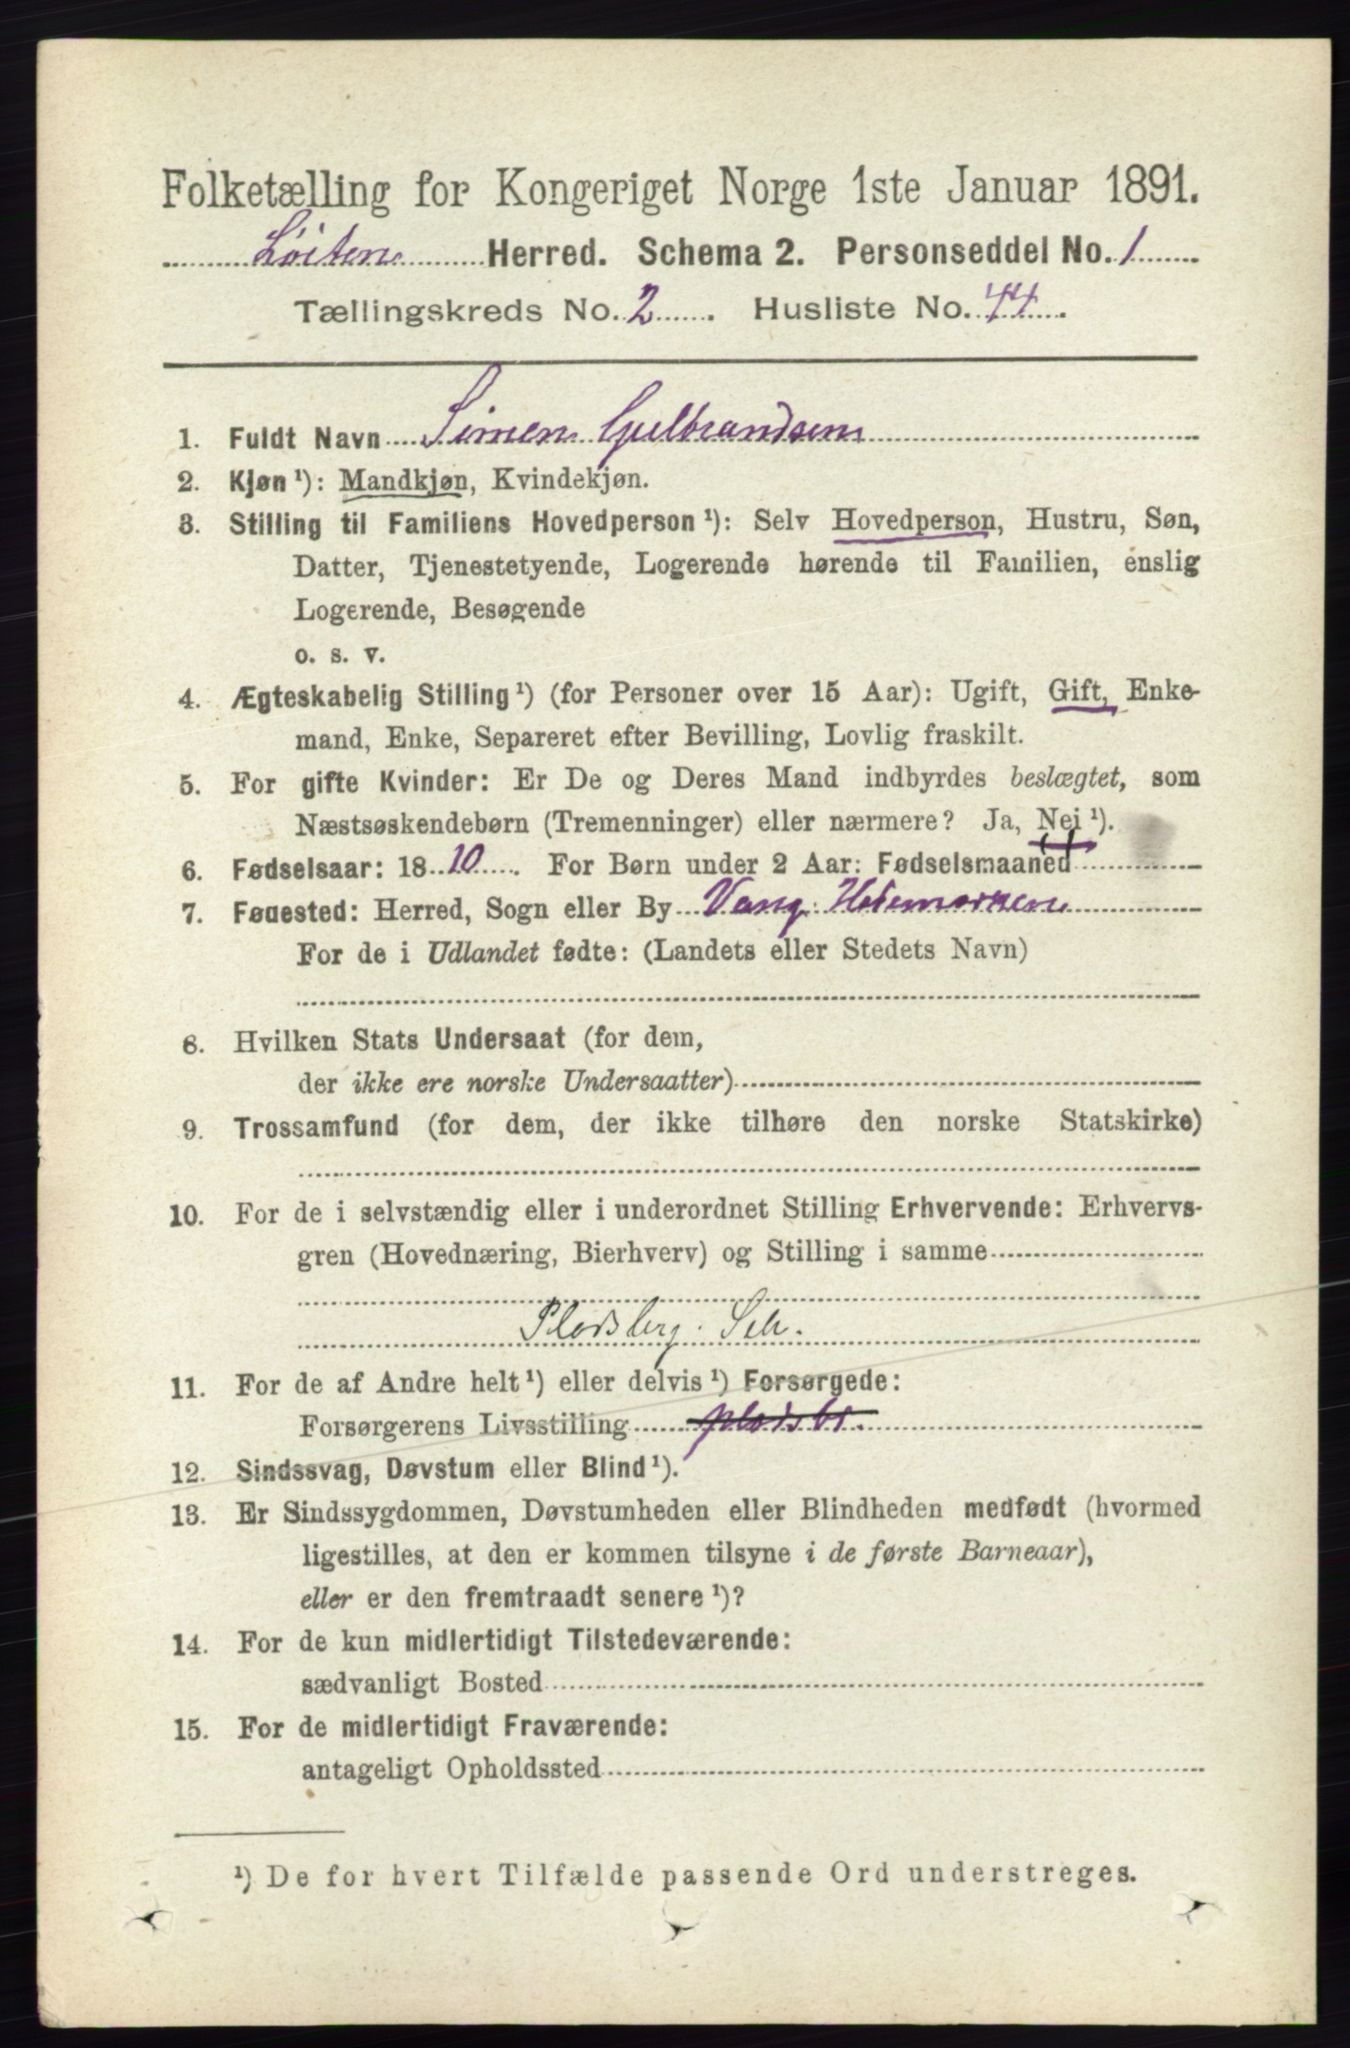 Folketælling for Kongeriget Norge 1ste Januar 1891.
Løiten Herred. Schema 2. Personseddel No. 1
Tællingskreds No. 2. Husliste No. 44.
1. Fuldt Navn Simen Gulbrandsen
2. Kjøn ¹): Mandkjøn, Kvindekjøn.
3. Stilling til Familiens Hovedperson ¹): Selv Hovedperson, Hustru, Søn,
Datter, Tjenestetyende, Logerende hørende til Familien, enslig
Logerende, Besøgende
o. s. v.
4. Ægteskabelig Stilling ¹) (for Personer over 15 Aar): Ugift, Gift, Enke-
mand, Enke, Separeret efter Bevilling, Lovlig fraskilt.
5. For gifte Kvinder: Er De og Deres Mand indbyrdes beslægtet, som
Næstsøskendebørn (Tremenninger) eller nærmere? Ja, Nei ¹).
6. Fødselsaar: 1810. For Børn under 2 Aar: Fødselsmaaned
7. Fødested: Herred, Sogn eller By Vang Hedemarken
For de i Udlandet fødte: (Landets eller Stedets Navn)
8. Hvilken Stats Undersaat (for dem,
der ikke ere norske Undersaatter)
9. Trossamfund (for dem, der ikke tilhøre den norske Statskirke)
10. For de i selvstændig eller i underordnet Stilling Erhvervende: Erhvervs-
gren (Hovednæring, Bierhverv) og Stilling i samme
Pladsberg. Selv.
11. For de af Andre helt ¹) eller delvis ¹) Forsørgede:
Forsørgerens Livsstilling pladsbr.
12. Sindssvag, Døvstum eller Blind ¹).
13. Er Sindssygdommen, Døvstumheden eller Blindheden medfødt (hvormed
ligestilles, at den er kommen tilsyne i de første Barneaar),
eller er den fremtraadt senere ¹)?
14. For de kun midlertidigt Tilstedeværende:
sædvanligt Bosted
15. For de midlertidigt Fraværende:
antageligt Opholdssted
¹) De for hvert Tilfælde passende Ord understreges.